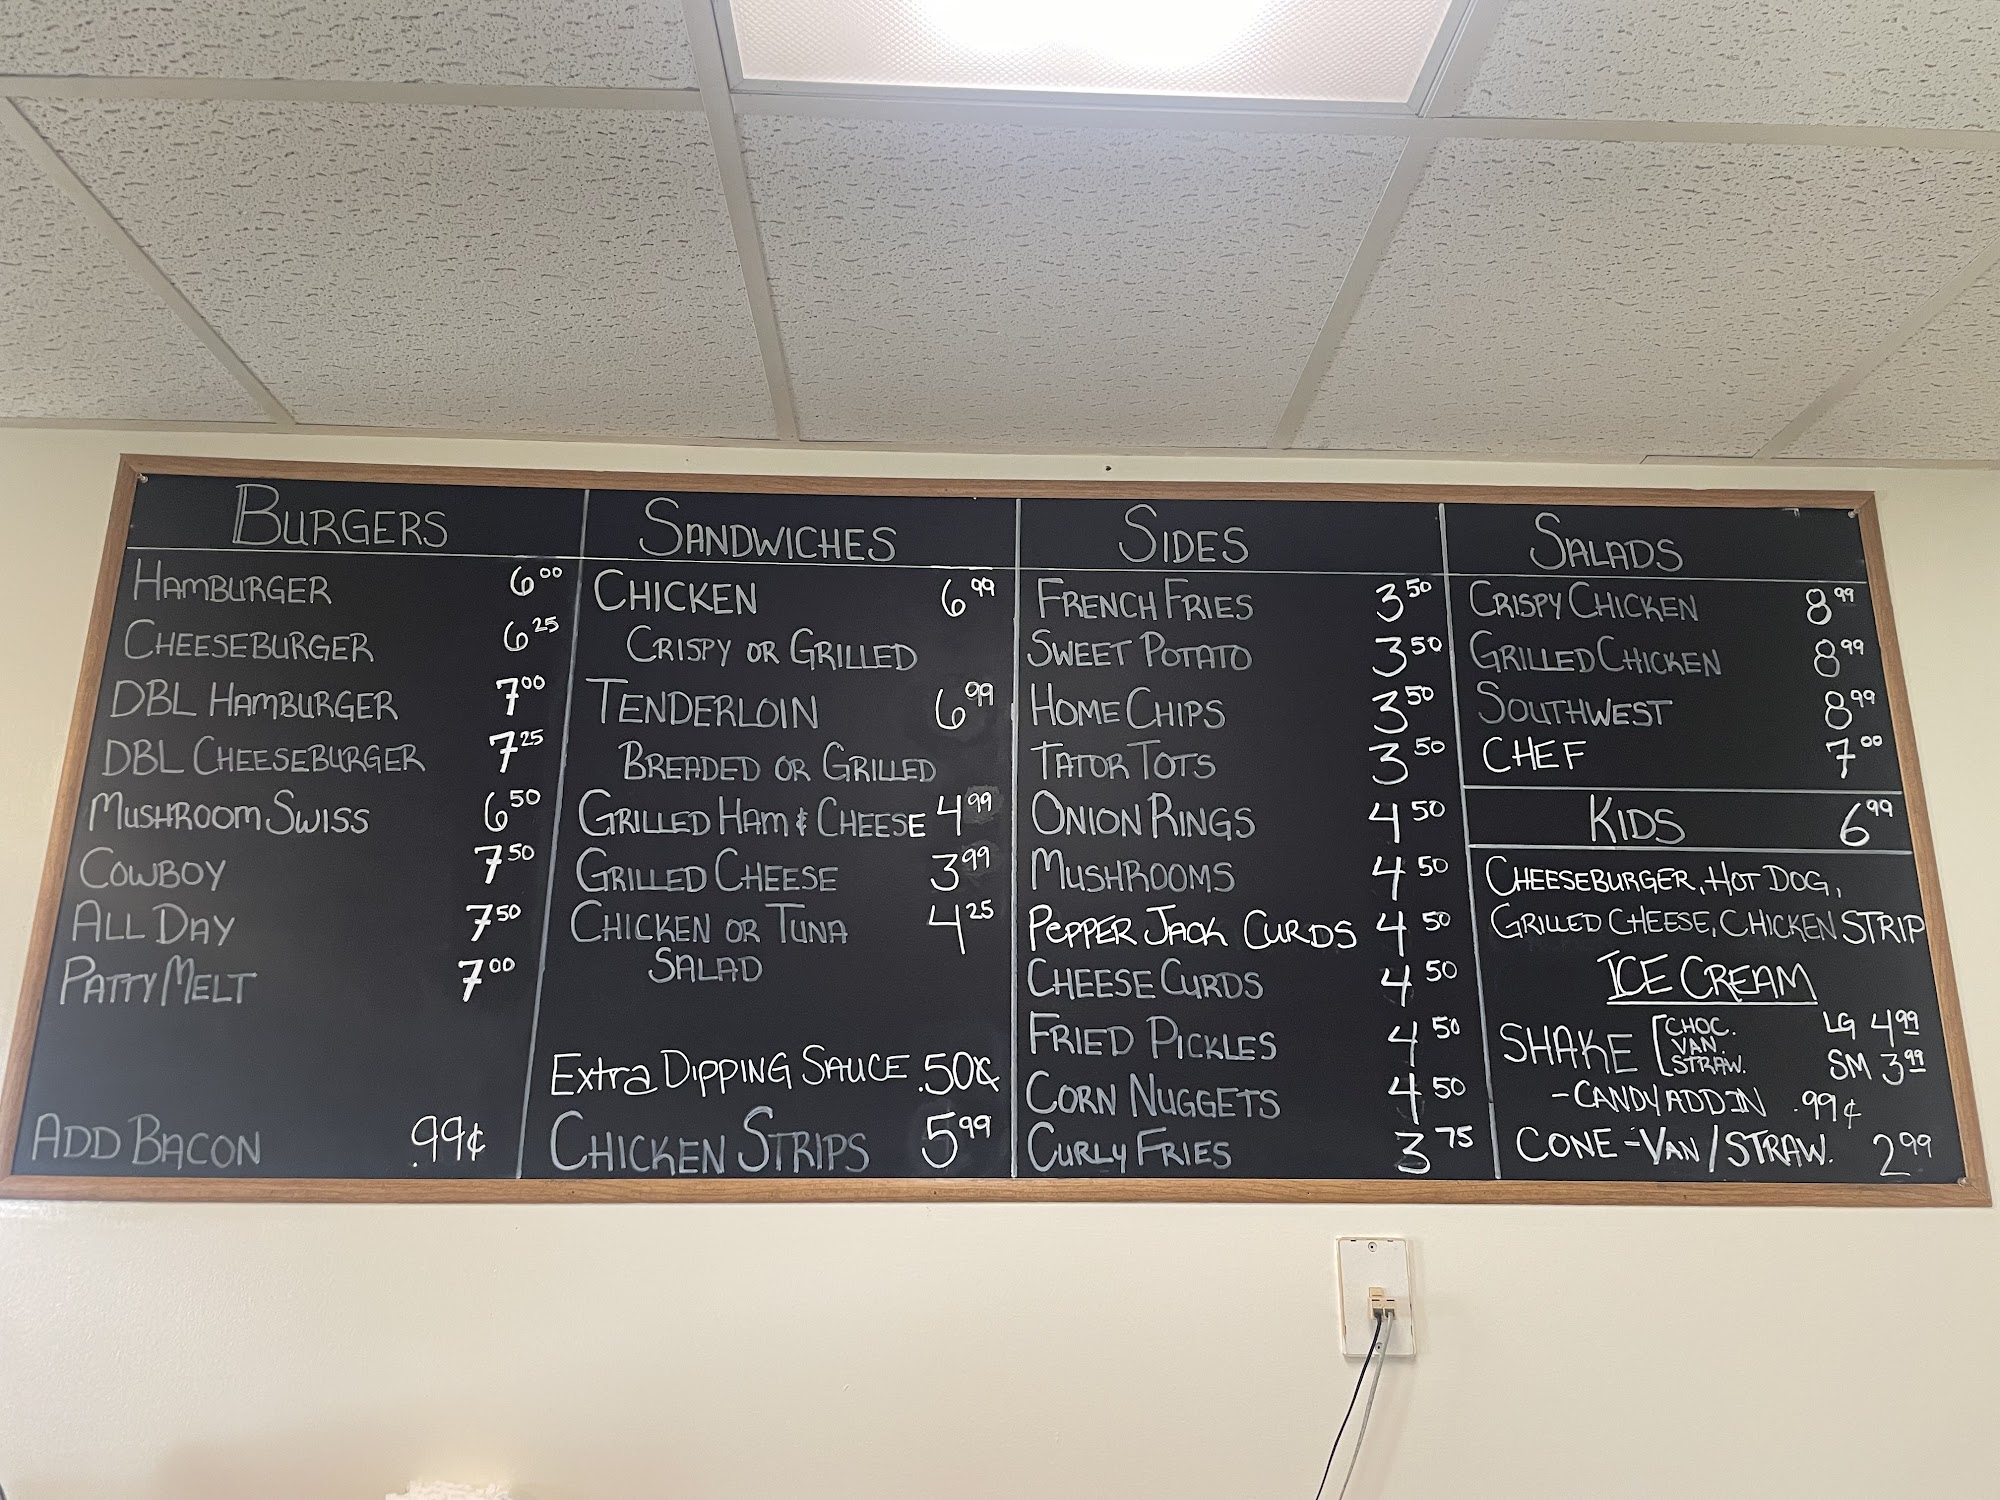 BURGERS
HAMBURGER 6.00
CHEESEBURGER 6.25
DBL HAMBURGER 7.00
DBL CHEESEBURGER 7.25
MUSHROOM SWISS 6.50
COWBOY 7.50
ALL DAY 7.50
PATTY MELT 7.00
ADD BACON .99¢
SANDWICHES
CHICKEN 6.99
CRISPY OR GRILLED
TENDERLOIN 6.99
BREADED OR GRILLED
GRILLED HAM & CHEESE 4.99
GRILLED CHEESE 3.99
CHICKEN OR TUNA 4.25
SALAD
EXTRA DIPPING SAUCE .50¢
CHICKEN STRIPS 5.99
SIDES
FRENCH FRIES 3.50
SWEET POTATO 3.50
HOME CHIPS 3.50
TATOR TOTS 3.50
ONION RINGS 4.50
MUSHROOMS 4.50
PEPPER JACK CURDS 4.50
CHEESE CURDS 4.50
FRIED PICKLES 4.50
CORN NUGGETS 4.50
CURLY FRIES 3.75
SALADS
CRISPY CHICKEN 8.99
GRILLED CHICKEN 8.99
SOUTHWEST 8.99
CHEF 7.00
KIDS 6.99
CHEESEBURGER, HOT DOG,
GRILLED CHEESE, CHICKEN STRIP
ICE CREAM
SHAKE [CHOC. VAN. STRAW. LG 4.99
SM 3.99
- CANDY ADD IN .99¢
CONE - VAN / STRAW. 2.99